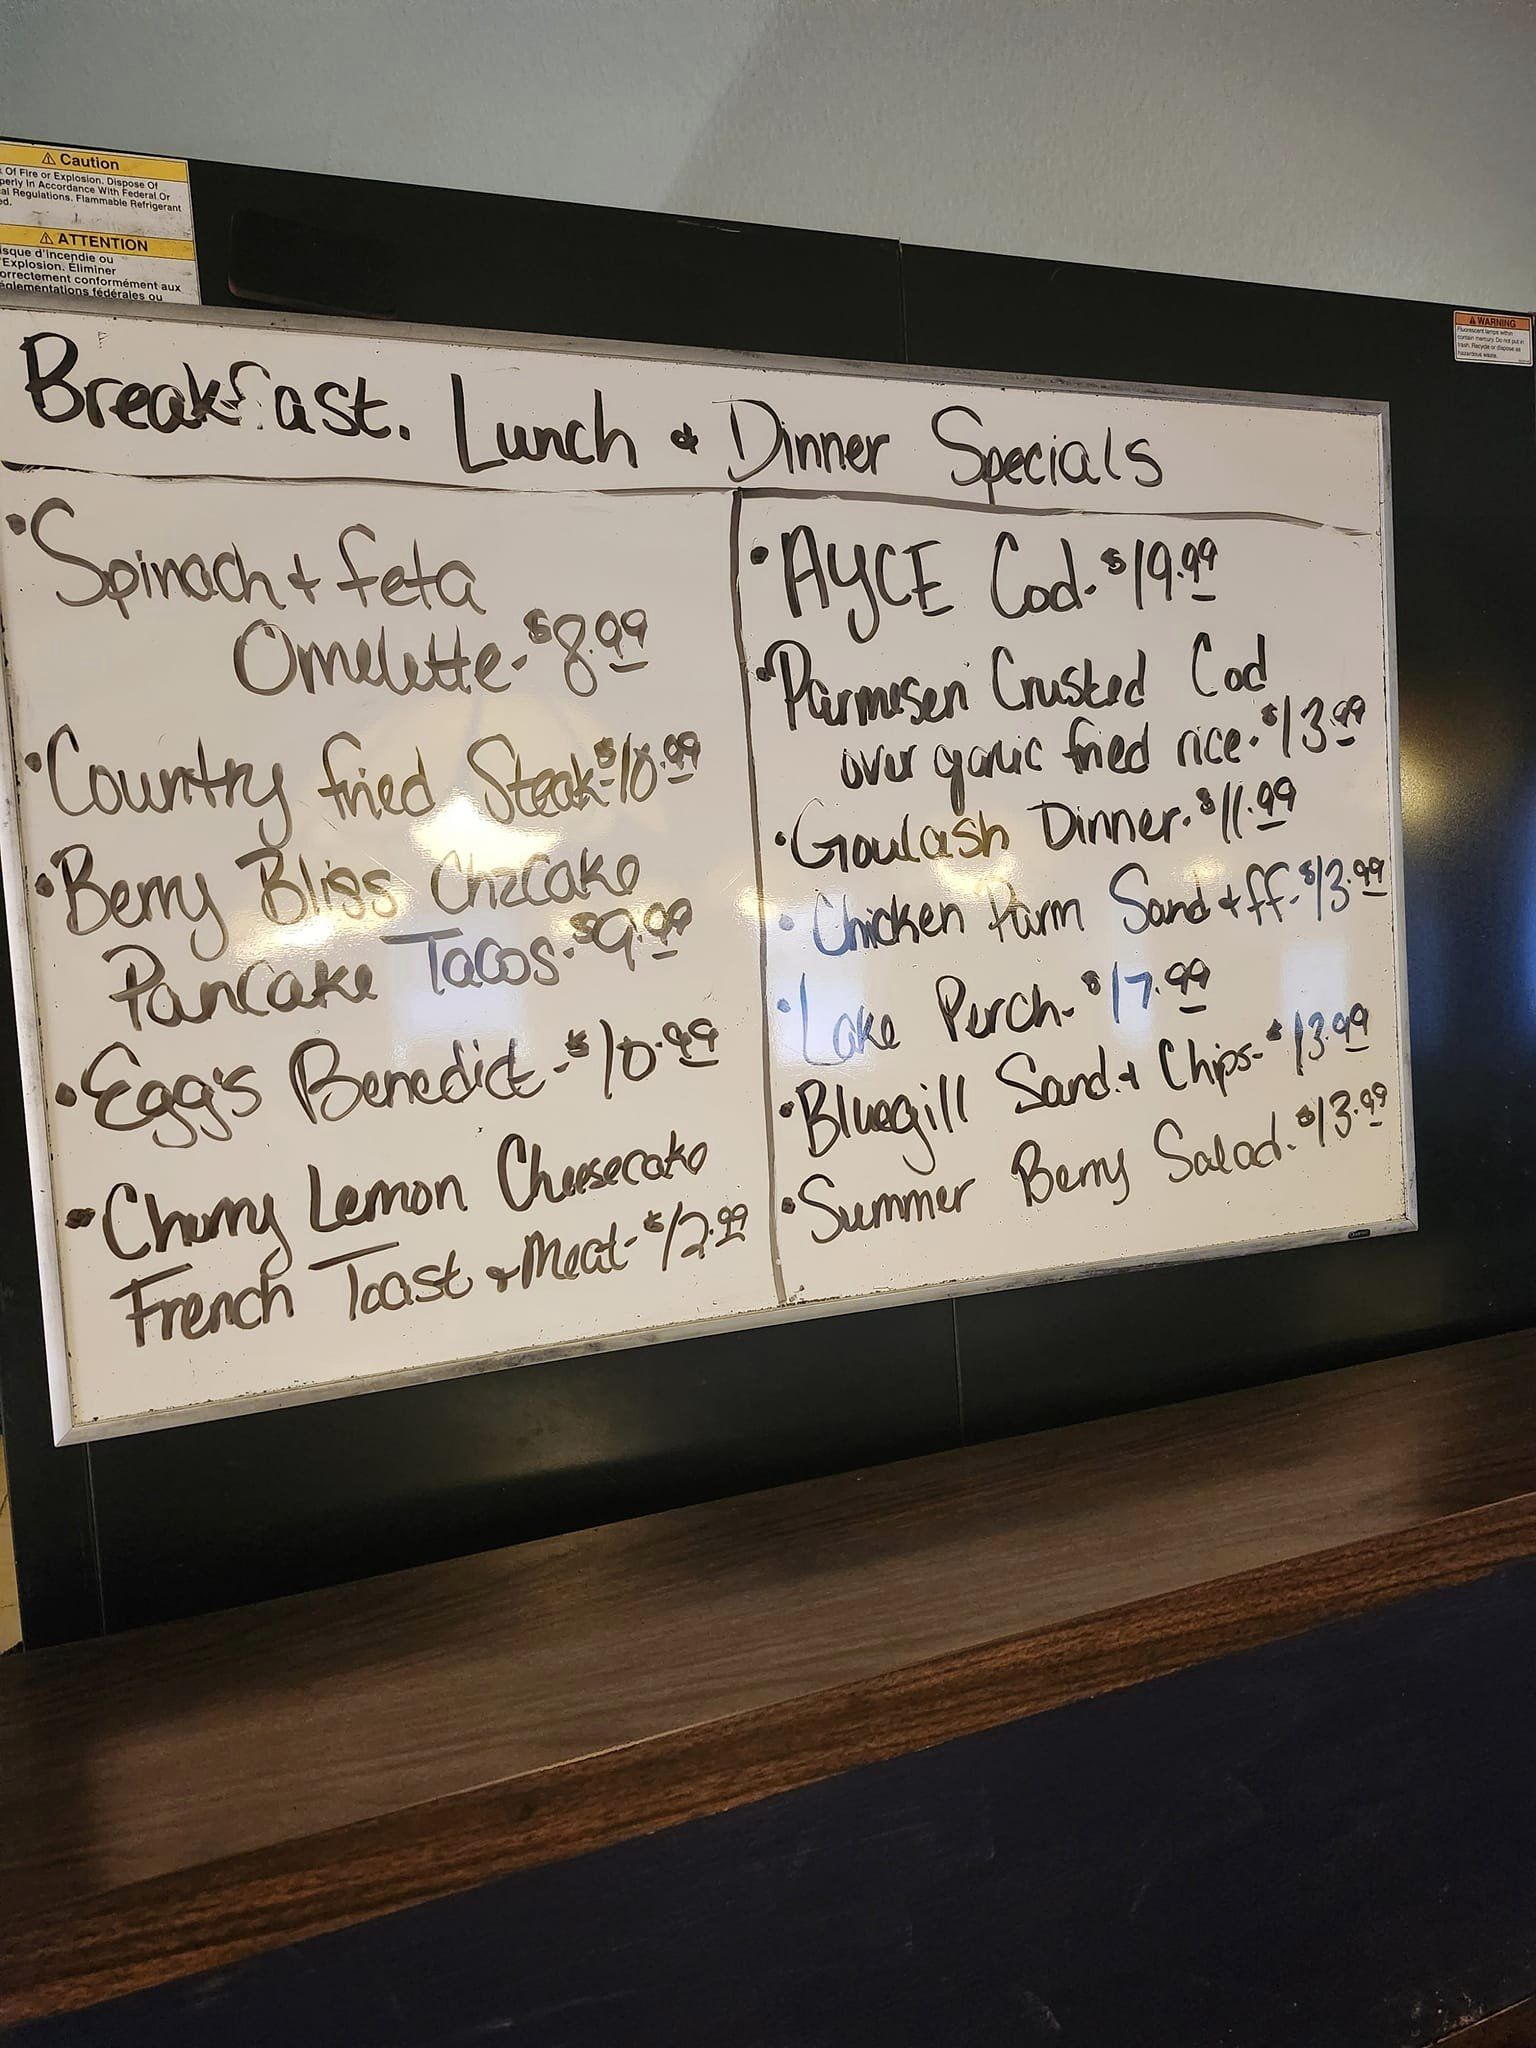 ⚠ Caution
Of Fire or Explosion. Dispose Of
perly In Accordance With Federal Or
al Regulations. Flammable Refrigerant
ed.
⚠ ATTENTION
isque d'incendie ou
'Explosion. Éliminer
orrectement conformément aux
églementations fédérales ou
⚠ WARNING
Fluorescent lamps within
contain mercury. Do not put in
trash. Recycle or dispose as
hazardous waste.
Breakfast. Lunch & Dinner Specials
• Spinach + feta
Omelette - $8.99
• Country fried Steak - $10.99
• Berry Bliss Chzcake
Pancake Tacos - $9.99
• Egg's Benedict - $10.99
• Cherry Lemon Cheesecake
French Toast & Meat - $12.99
• AYCE Cod - $19.99
• Parmesen Crusted Cod
over garlic fried rice - $13.99
• Goulash Dinner - $11.99
• Chicken Parm Sand + ff - $13.99
• Lake Perch - $17.99
• Bluegill Sand. + Chips - $13.99
• Summer Berry Salad - $13.99